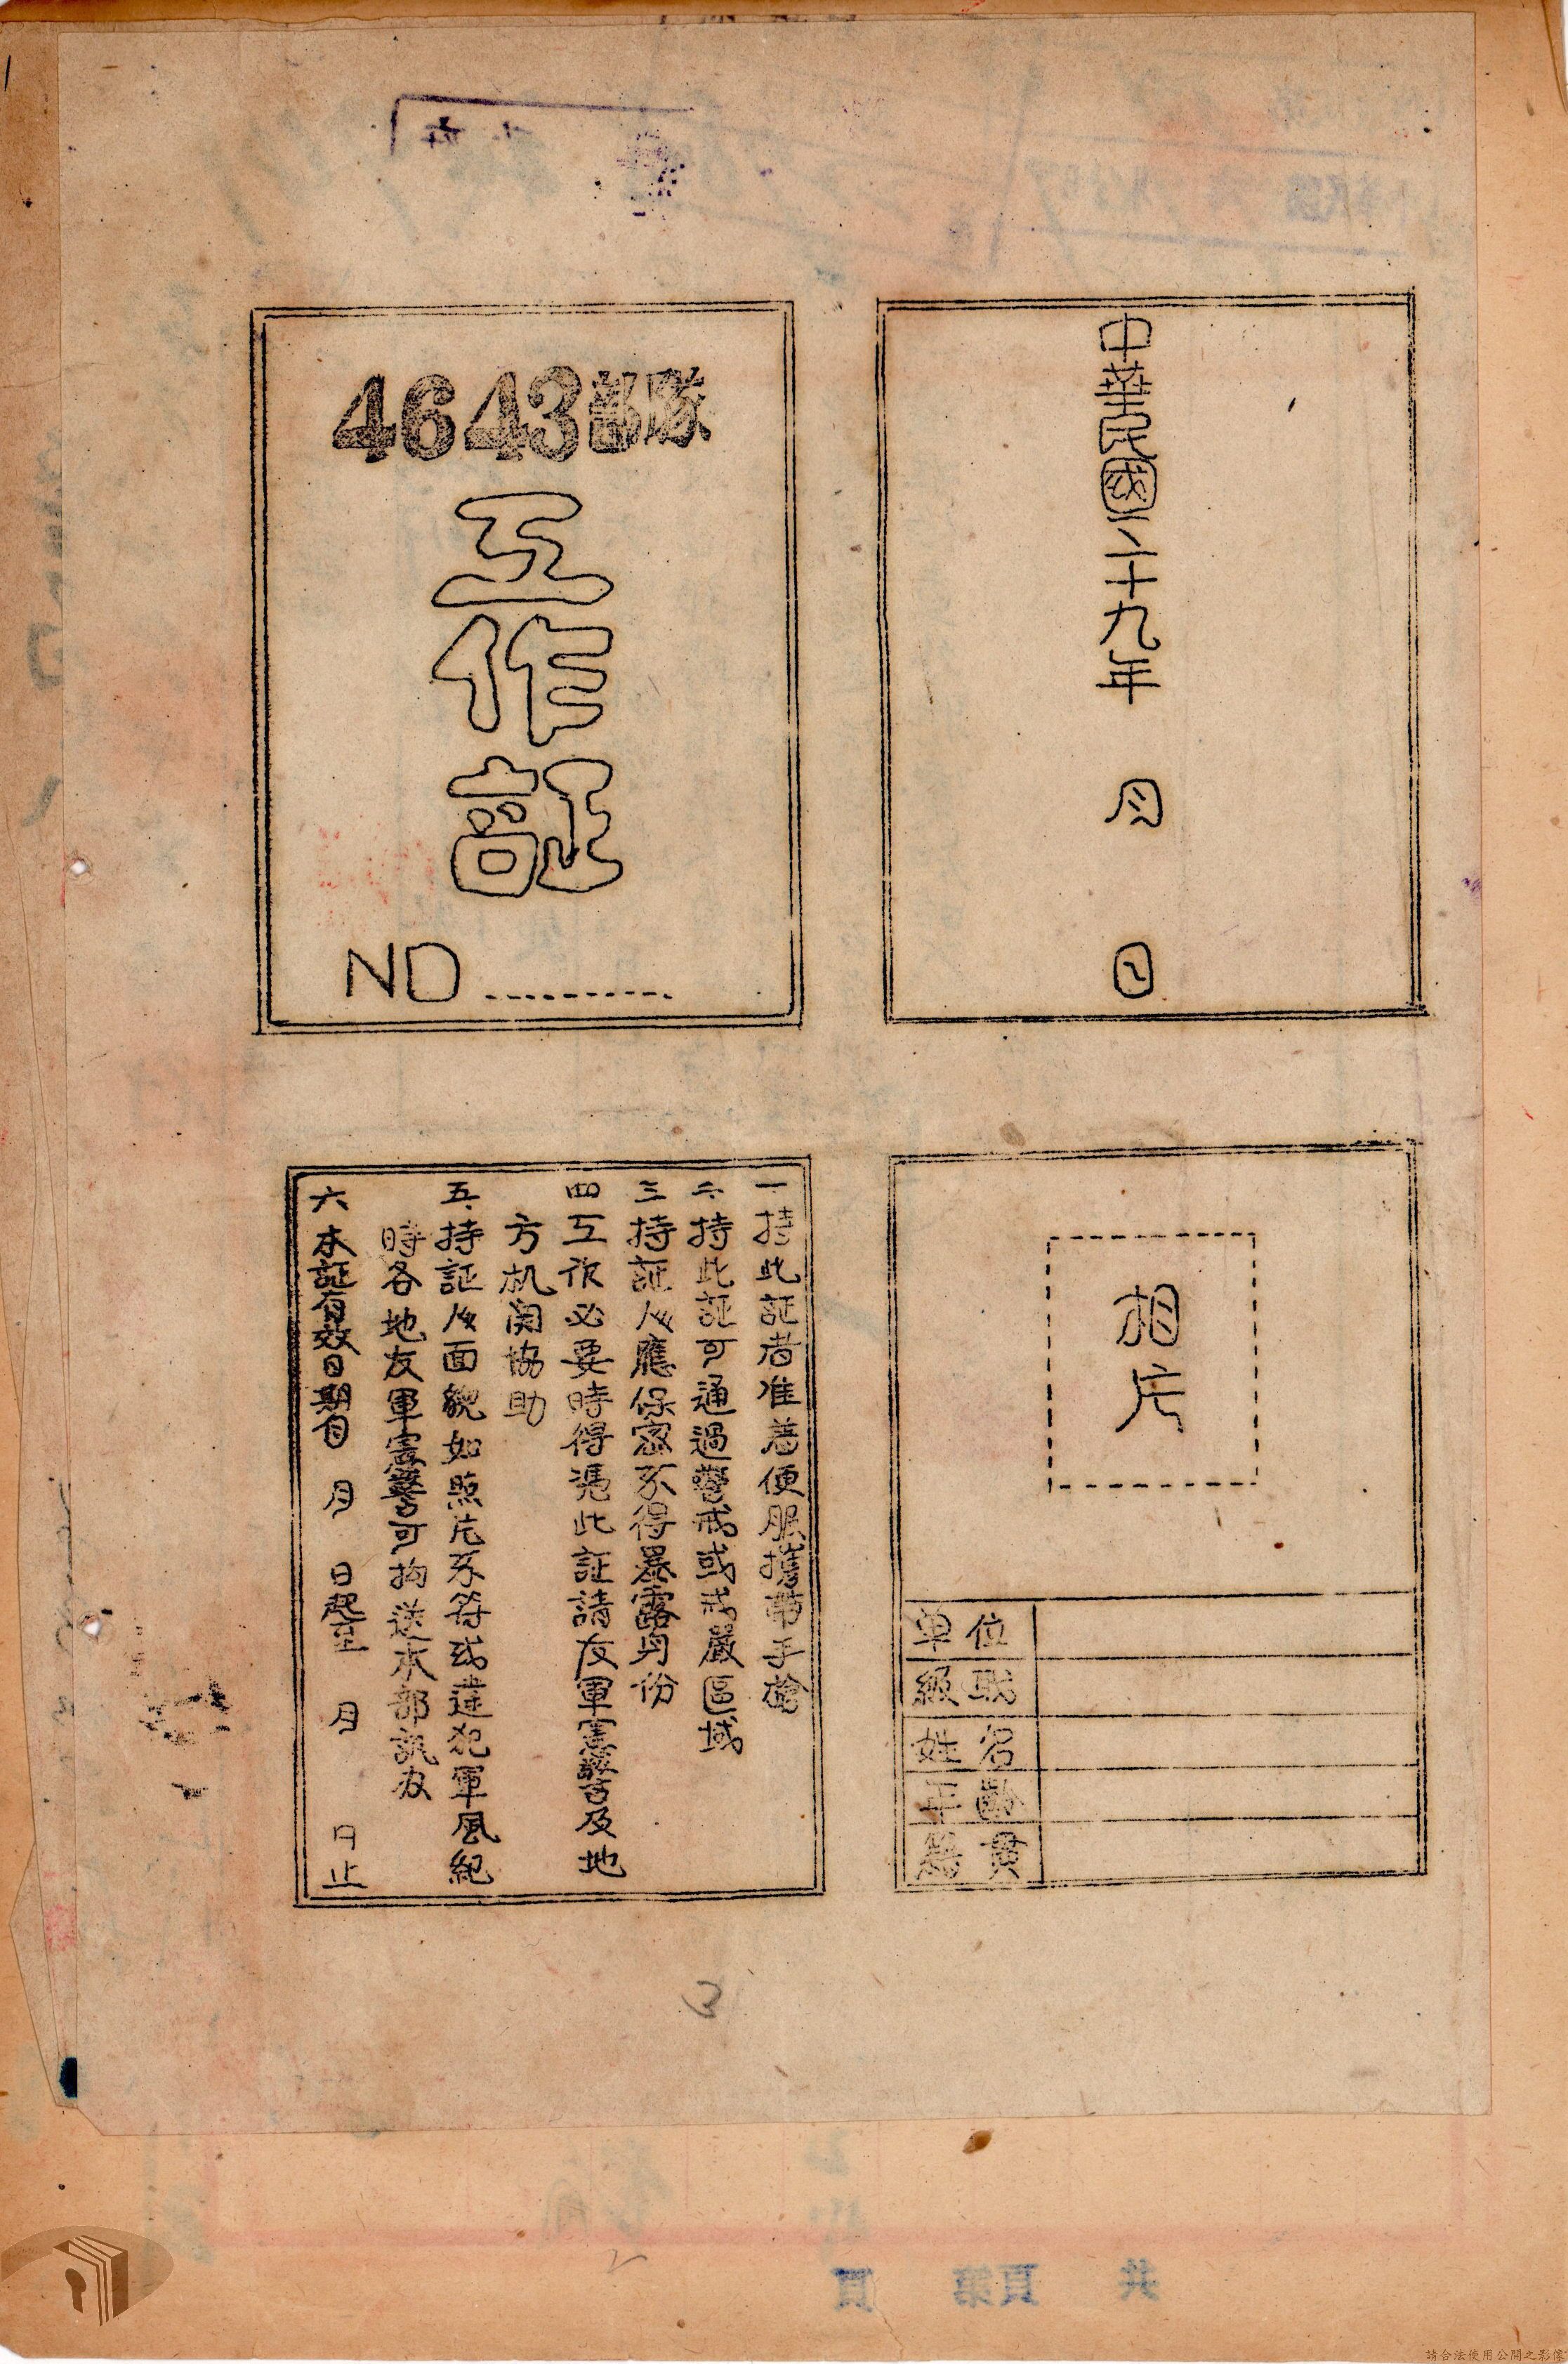 4643部隊
工作証
NO
中華民國三十九年 月 日
一 持此証者准着便服携帶手槍
二 持此証可通過警戒或戒嚴區域
三 持証人應保密不得暴露身份
四 工作必要時得憑此証請友軍憲警及地
方机関協助
五 持証人面貌如照片不符或違犯軍風紀
時各地友軍憲警可拘送本部訊办
六 本証有效日期自 月 日起至 月 日止
相片
单位
級職
姓名
年齡
籍貫
3
共 頁第 頁
請合法使用公開之影像